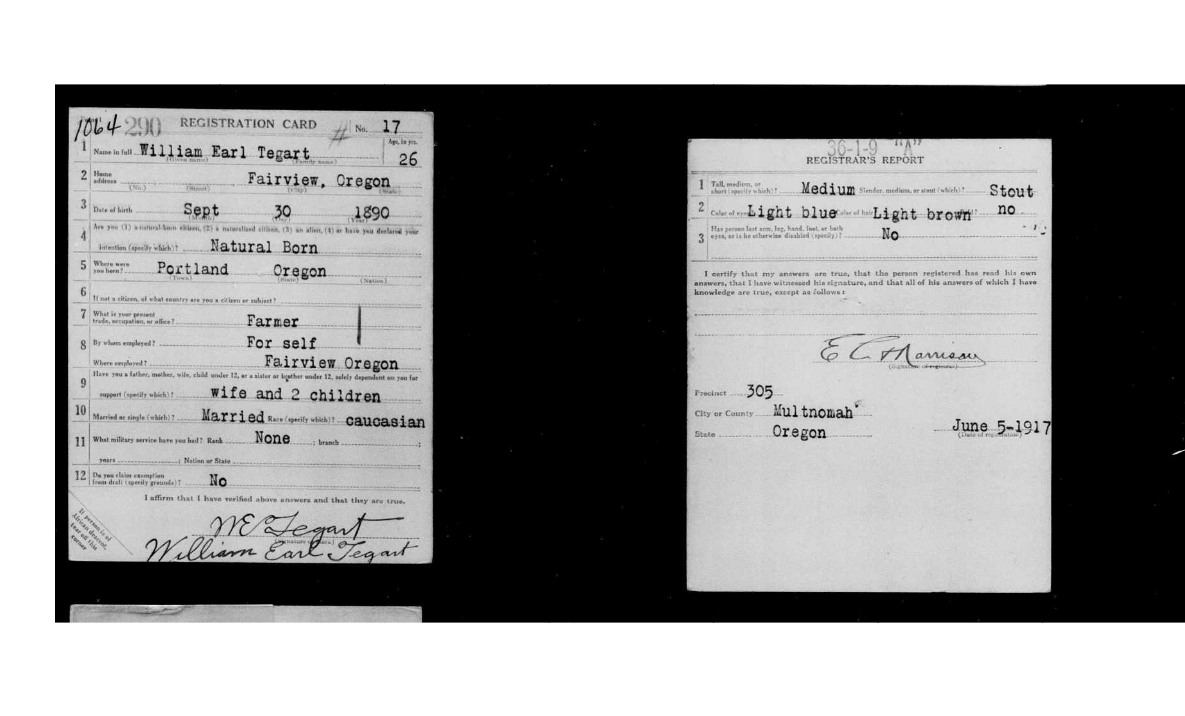 1064 290 REGISTRATION CARD No. 17
1 Name in full William Earl Tegart Age, in yrs. 26
(Given name) (Family name)
2 Home address Fairview, Oregon
(No.) (Street) (City) (State)
3 Date of birth Sept 30 1890
(Month) (Day) (Year)
4 Are you (1) a natural-born citizen, (2) a naturalized citizen, (3) an alien, (4) or have you declared your
intention (specify which)? Natural Born
5 Where were you born? Portland Oregon
(Town) (State) (Nation)
6 If not a citizen, of what country are you a citizen or subject?
7 What is your present trade, occupation, or office? Farmer
8 By whom employed? For self
Where employed? Fairview Oregon
9 Have you a father, mother, wife, child under 12, or a sister or brother under 12, solely dependent on you for
support (specify which)? wife and 2 children
10 Married or single (which)? Married Race (specify which)? caucasian
11 What military service have you had? Rank None ; branch ;
years ; Nation or State
12 Do you claim exemption from draft (specify grounds)? No
I affirm that I have verified above answers and that they are true.
W E Tegart
(Signature or mark)
William Earl Tegart
If person is of African descent, tear off this corner
36-1-9 "A"
REGISTRAR'S REPORT
1 Tall, medium, or short (specify which)? Medium Slender, medium, or stout (which)? Stout
2 Color of eyes Light blue Color of hair Light brown no
3 Has person lost arm, leg, hand, foot, or both eyes, or is he otherwise disabled (specify)? No
I certify that my answers are true, that the person registered has read his own
answers, that I have witnessed his signature, and that all of his answers of which I have
knowledge are true, except as follows:
E C Harrison
(Signature of registrar)
Precinct 305
City or County Multnomah
State Oregon June 5-1917
(Date of registration)